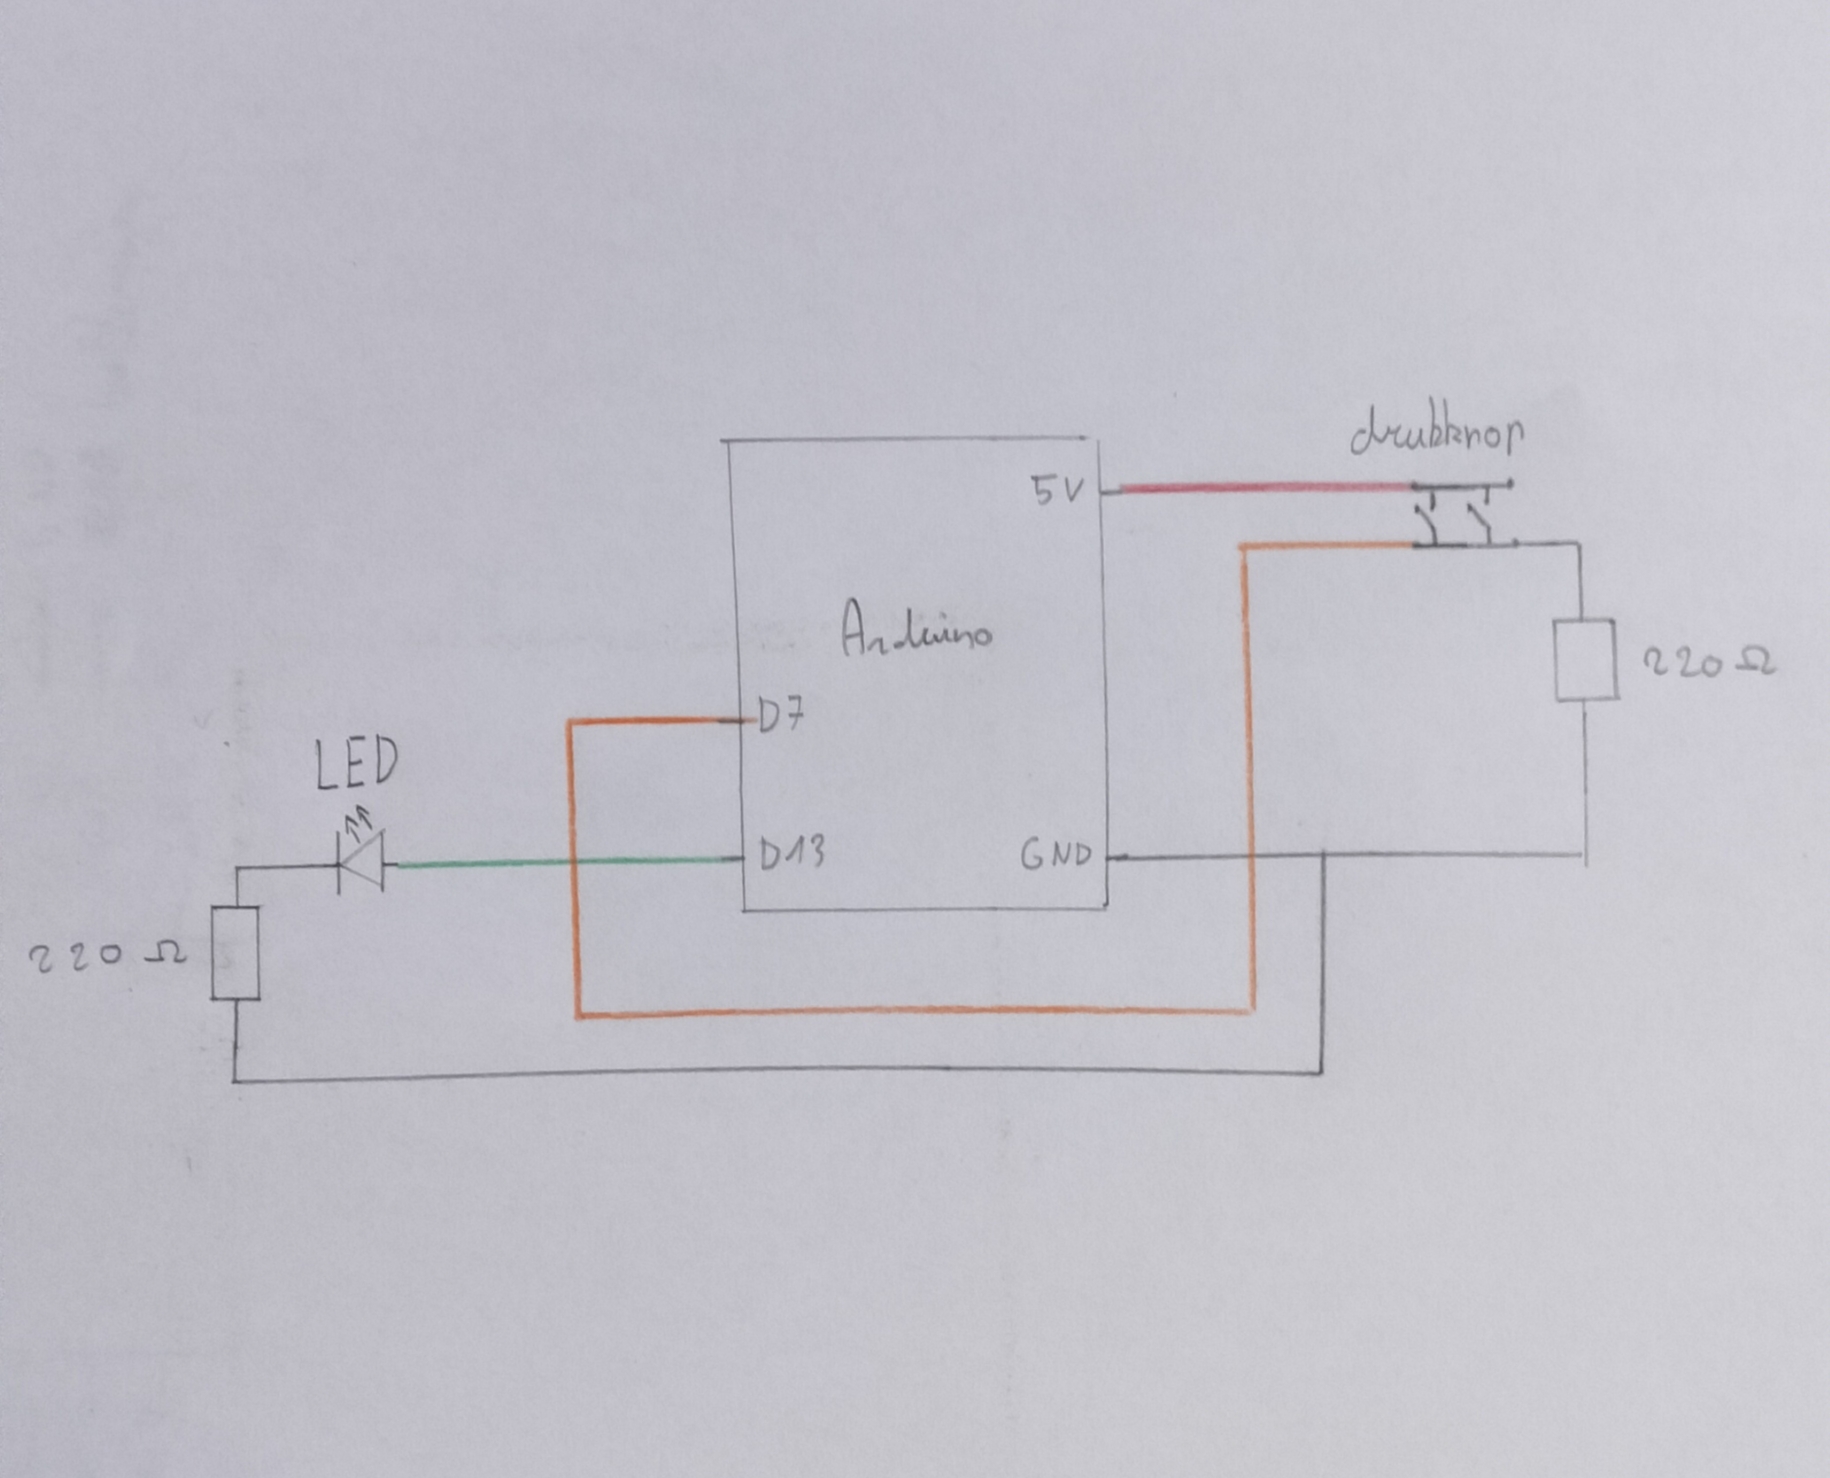 drukknop
5V
Arduino
220 Ω
D7
LED
D13
GND
220 Ω